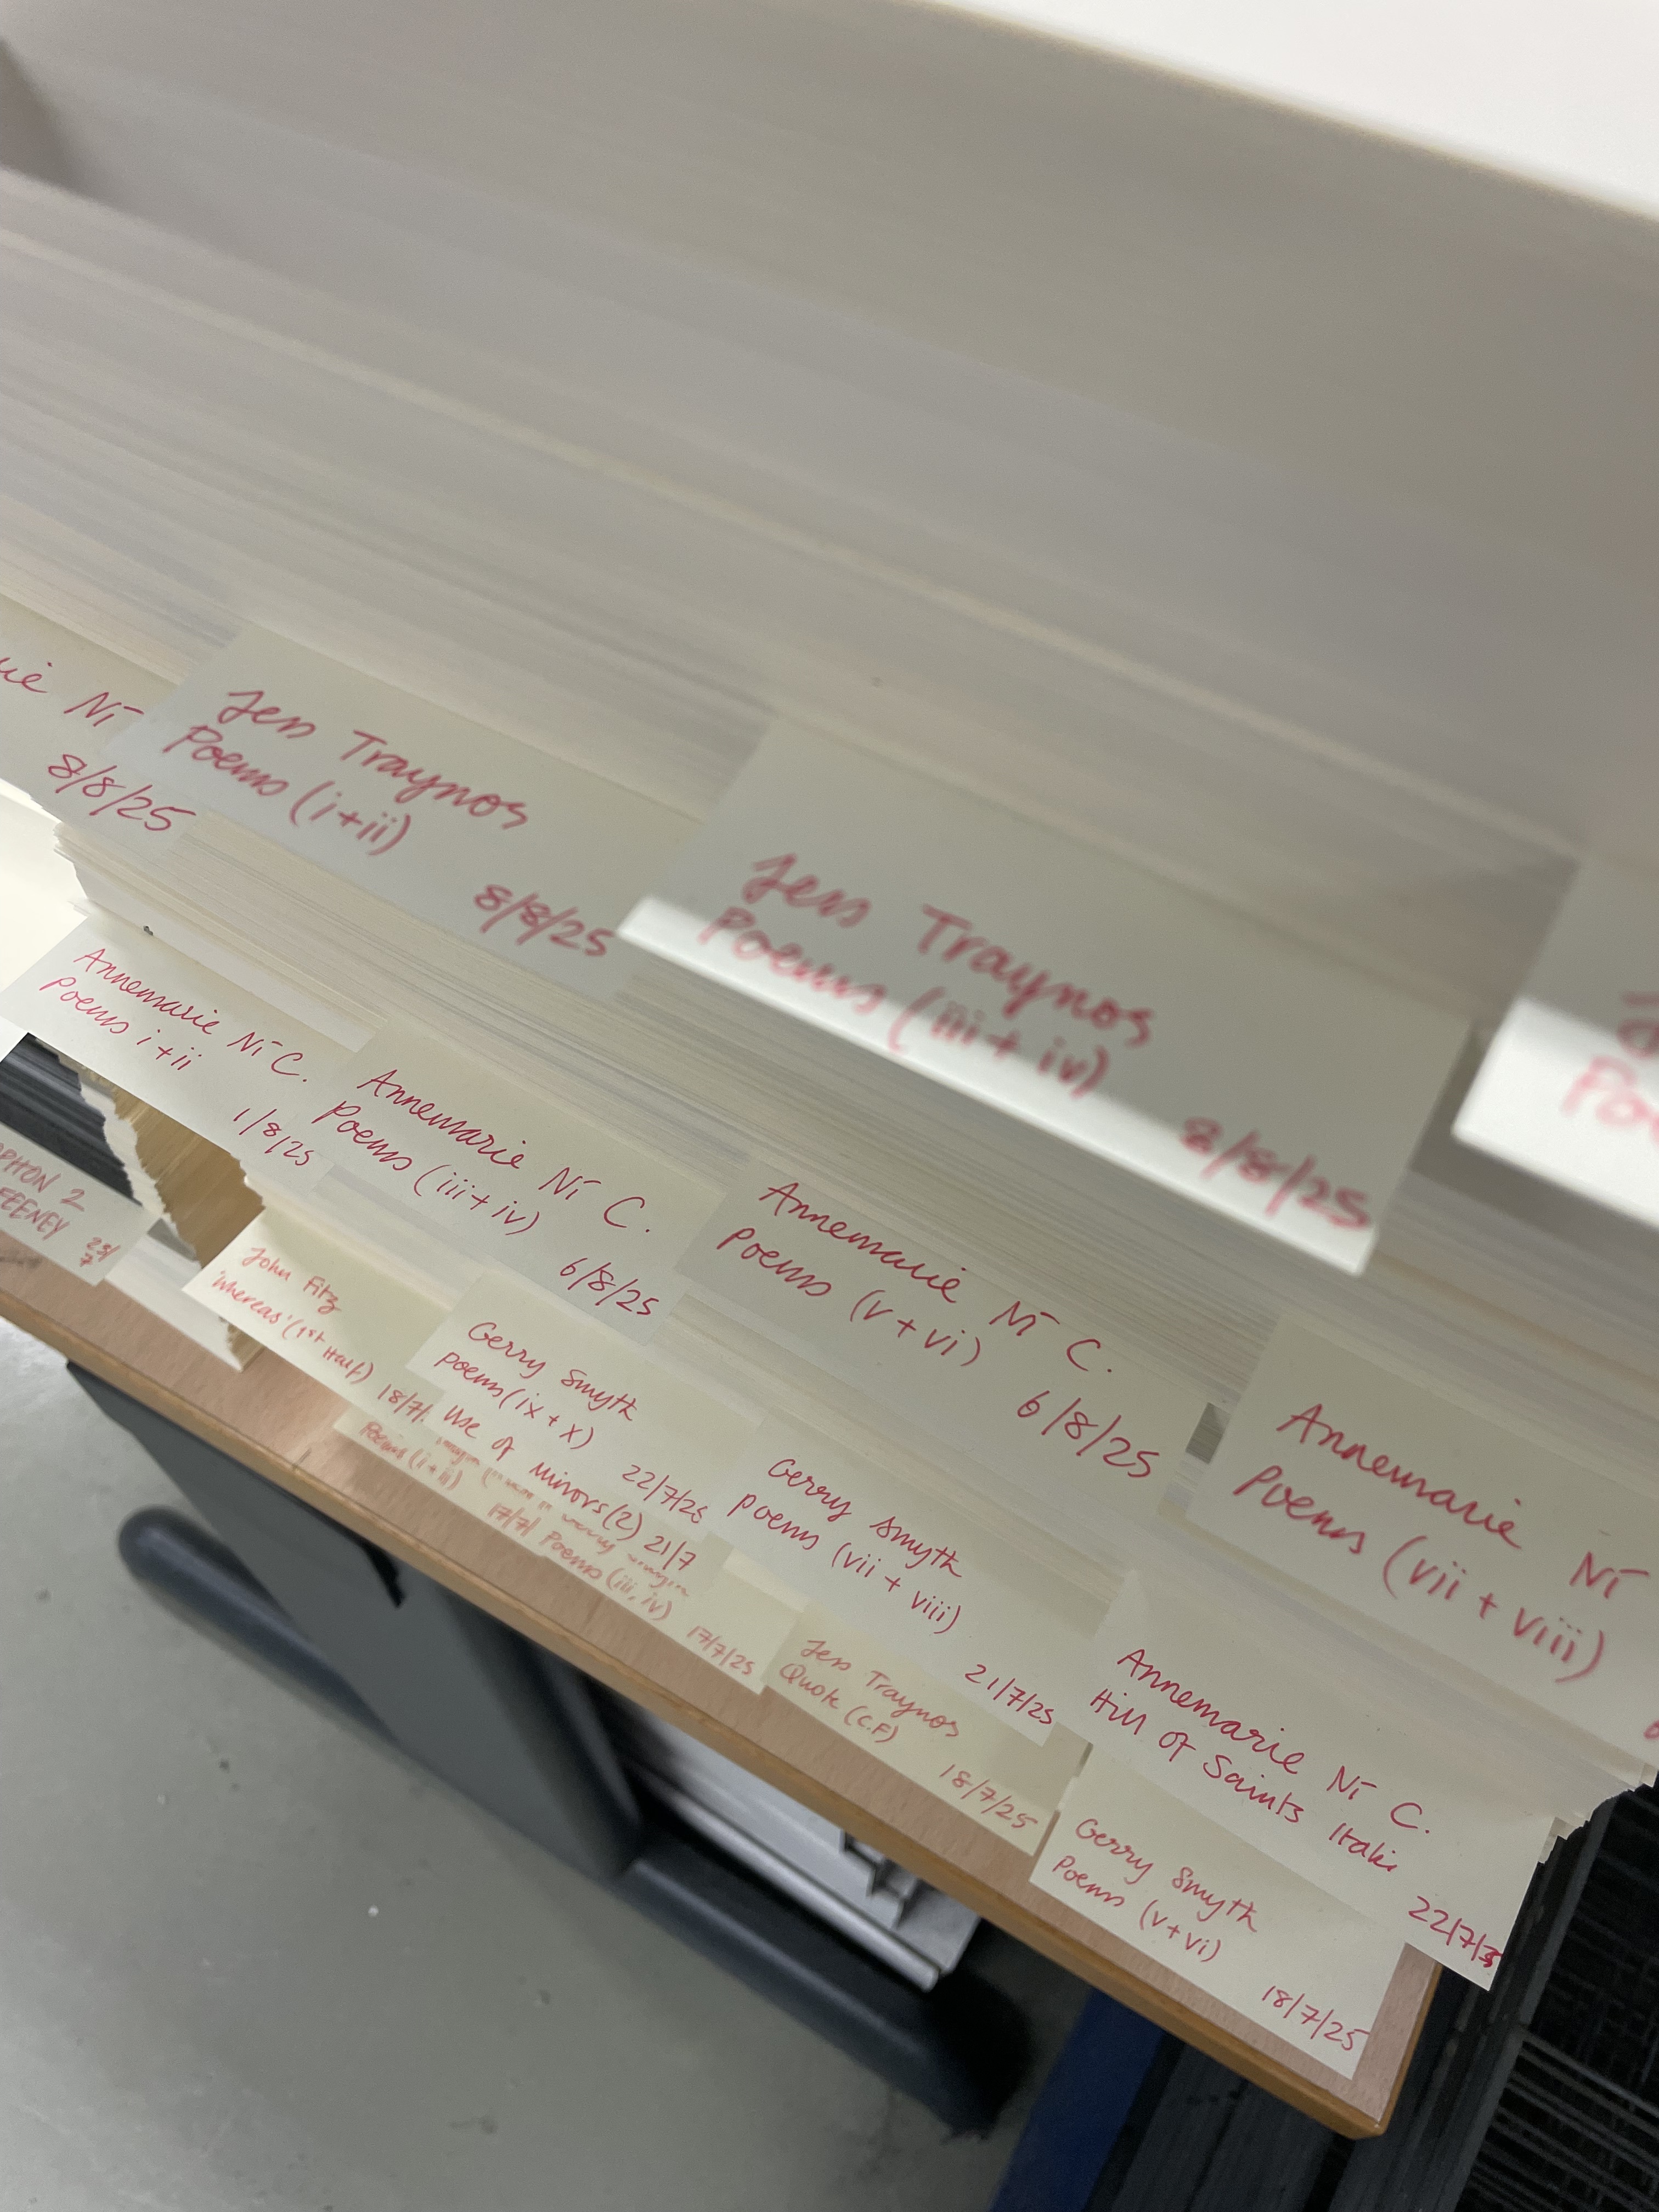 Ní
8/8/25
Jess Traynor
Poems (i+ii)
8/8/25
Jess Traynor
Poems (iii+iv)
8/8/25
Annemarie Ní C.
Poems i+ii
1/8/25
Annemarie Ní C.
Poems (iii+iv)
6/8/25
Annemarie Ní C.
Poems (v+vi)
6/8/25
Annemarie Ní
Poems (vii+viii)
2
FEENEY
25/
7
John Fitz
'Whereas' (1st Half)
18/7/
Gerry Smyth
poems (ix+x)
22/7/25
Use of Minors (2) 21/7
Poems (i+ii)
17/7/
Poems (iii, iv)
17/7/25
Gerry Smyth
poems (vii+viii)
21/7/25
Jess Traynor
Quote (C.F)
18/7/25
Annemarie Ní C.
Hill of Saints Italic
22/7/25
Gerry Smyth
Poems (v+vi)
18/7/25